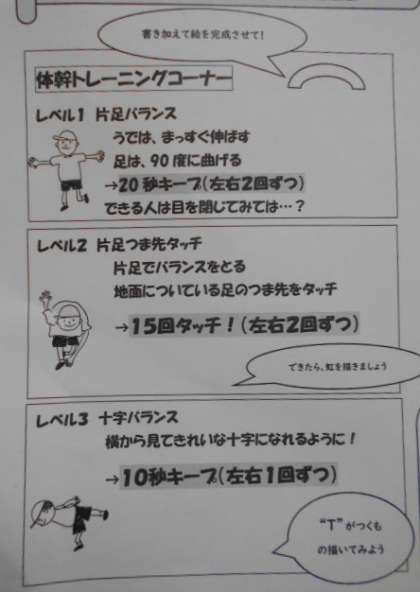 書き加えて絵を完成させて！
体幹トレーニングコーナー
レベル１ 片足バランス
うでは、まっすぐ伸ばす
足は、90度に曲げる
→20秒キープ（左右２回ずつ）
できる人は目を閉じてみては…？
レベル２ 片足つま先タッチ
片足でバランスをとる
地面についている足のつま先をタッチ
→15回タッチ！（左右２回ずつ）
できたら、虹を描きましょう
レベル３ 十字バランス
横から見てきれいな十字になれるように！
→10秒キープ（左右１回ずつ）
“T”がつくも
の描いてみよう